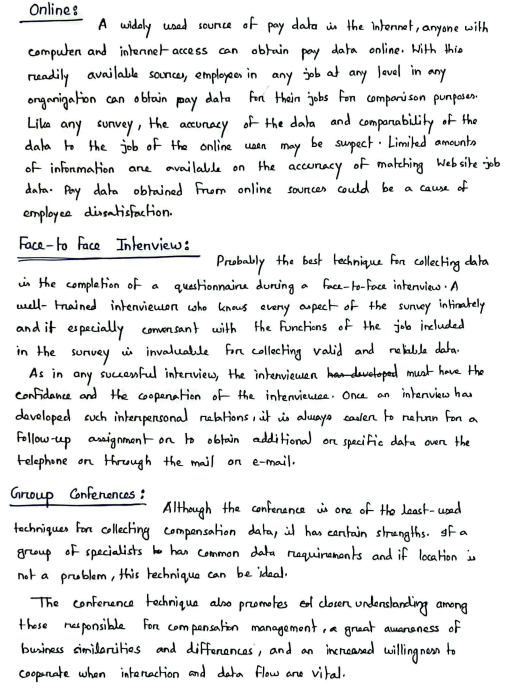 Online:
A widely used source of pay data is the internet, anyone with
computer and internet access can obtain pay data online. With this
readily available sources, employees in any job at any level in any
organization can obtain pay data for their jobs for comparison purposes.
Like any survey, the accuracy of the data and comparability of the
data to the job of the online user may be suspect. Limited amounts
of information are available on the accuracy of matching Web site job
data. Pay data obtained from online sources could be a cause of
employee dissatisfaction.
Face-to Face Interview:
Probably the best technique for collecting data
is the completion of a questionnaire during a face-to-face interview. A
well-trained interviewer who knows every aspect of the survey intimately
and if especially conversant with the functions of the job included
in the survey is invaluable for collecting valid and reliable data.
As in any successful interview, the interviewer has developed must have the
confidence and the cooperation of the interviewee. Once an interview has
developed such interpersonal relations, it is always easier to return for a
follow-up assignment or to obtain additional or specific data over the
telephone or through the mail or e-mail.
Group Conferences:
Although the conference is one of the least-used
techniques for collecting compensation data, it has certain strengths. If a
group of specialists has common data requirements and if location is
not a problem, this technique can be ideal.
The conference technique also promotes closer understanding among
those responsible for compensation management, a great awareness of
business similarities and differences, and an increased willingness to
cooperate when interaction and data flow are vital.